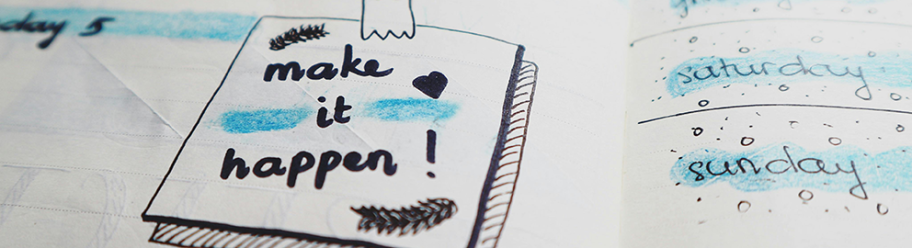 day 5
make
it
happen !
saturday
sunday